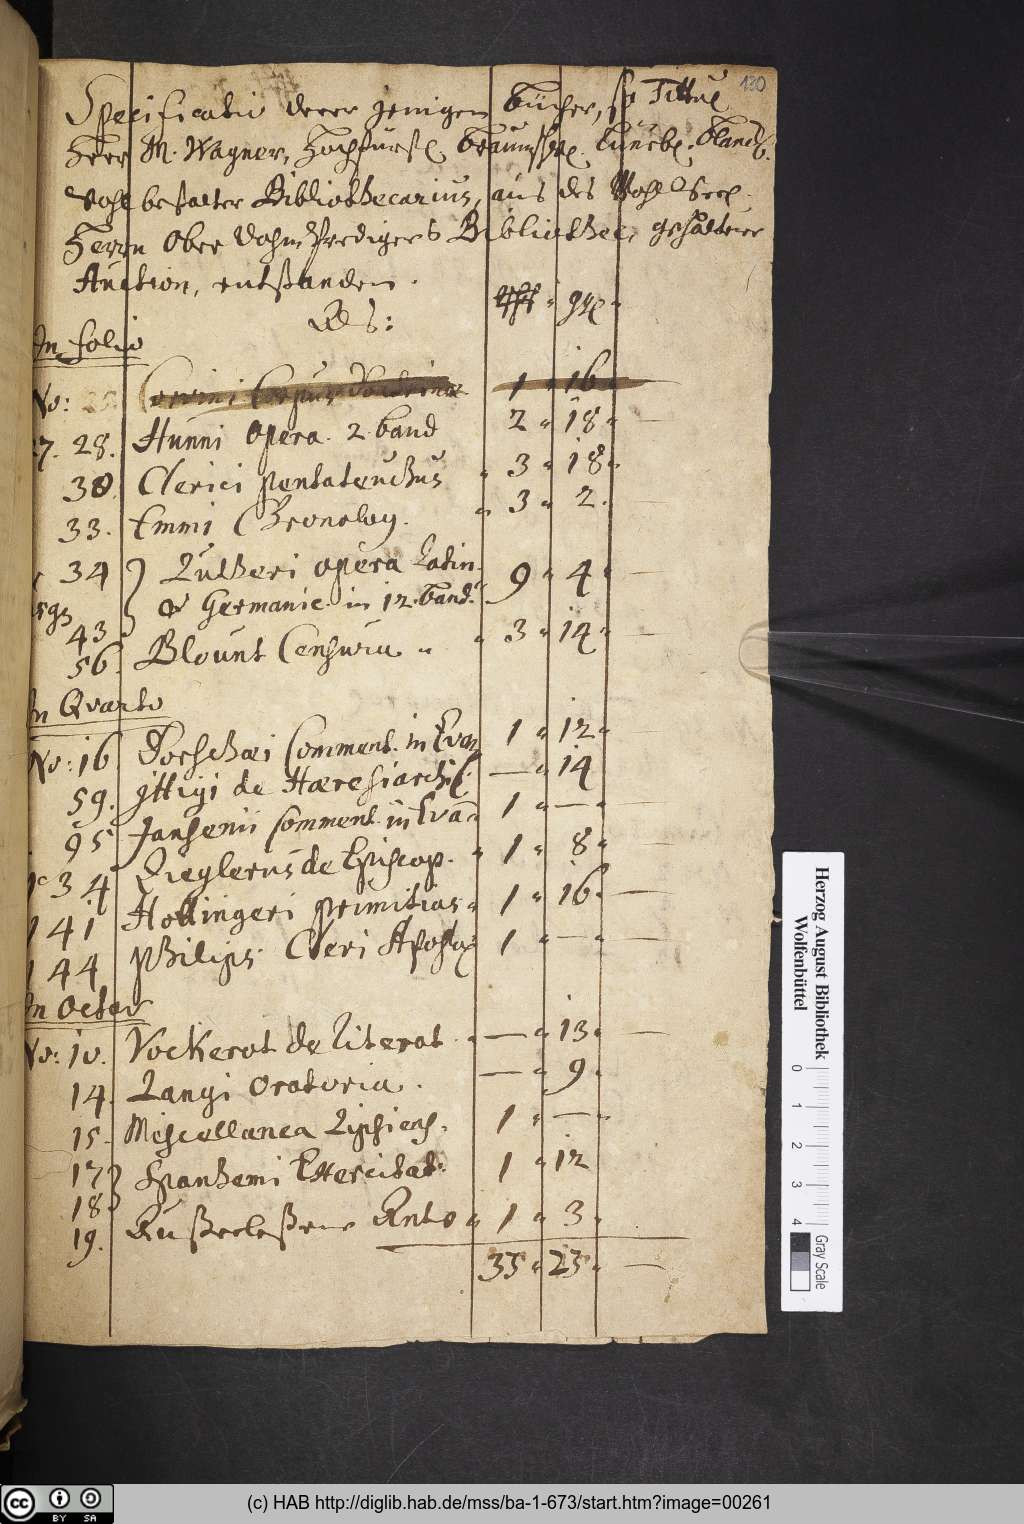 130
Specificatio derer jenigen Bücher, so Tittul
Herr M. Wagner, Hochfürstl. Braunschw. Lüneb. Bland.
Wohlbestalter Bibliothecarius, aus des Wohl Seel.
Herrn Ober Dohm Predigers Bibliothec, gehaltener
Auction, entstanden.
Als: gl.
In folio
No: Corvini Corpus Doctrinae 1 16
27. 28. Hunni Opera. 2. band 2 18
30. Clerici Pentateuchus 3 18
33. Emmi Chronolog. 3 2.
34 Lutheri opera Latin. 9 4
& Germanic. in 12. band.
43
56. Blount Censura 3 14
In Qvarto
No: 16 Dorschaei Comment. in Evan 1 12
59. Ittigi de Haeresiarchis. — 14
95 Jansenii Comment. in Evan 1 —
134 Zieglerus de Episcop. 1 8
141 Hottingeri primitiae 1 16
144 Philips. Cleri Aposto 1 —
In Octav
No: 10. Vockerot de Literat. — 13
14. Langi Oratoria. — 9
15. Miscellanea Lipsiens. 1 —
17 Spanhemi Exercitat. 1 12
18
19. Außerleßene Anto 1 3
35 23 —
Herzog August Bibliothek
Wolfenbüttel
0 1 2 3 4
Gray Scale
(c) HAB http://diglib.hab.de/mss/ba-1-673/start.htm?image=00261
cc BY SA